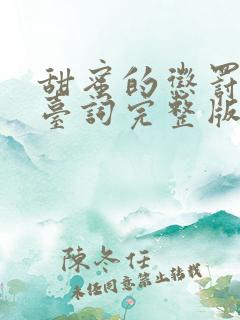 甜蜜的懲罰
臺詞完整版
陳冬任
未經同意禁止轉載